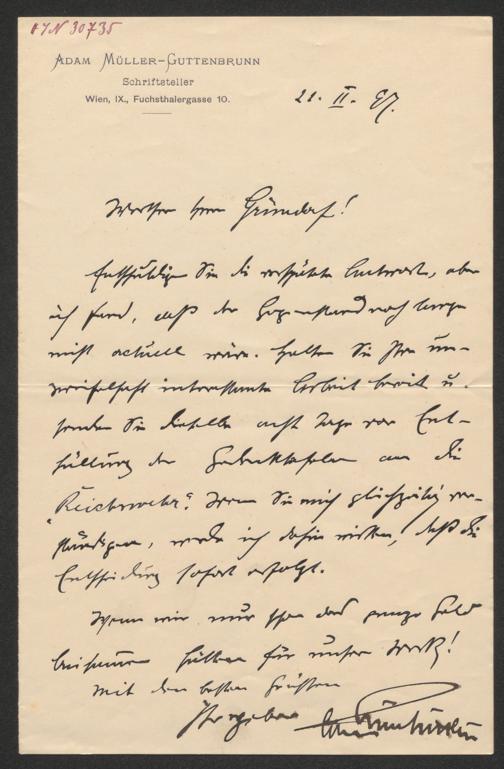 IN 30735
ADAM MÜLLER-GUTTENBRUNN
Schriftsteller
Wien, IX., Fuchsthalergasse 10.
21. II. 97.
Werther Herr Gründorf!
Entschuldigen Sie die verspätete Antwort, aber
ich fand, daß der Gegenstand noch lange
nicht actuell wäre. Halten Sie Ihre un-
zweifelhaft interessante Arbeit bereit u.
senden Sie dieselbe acht Tage vor Ent-
hüllung der Gedenktafeln an die
"Reichswehr". Wenn Sie mich gleichzeitig ver-
ständigen, werde ich dahin wirken, daß die
Entscheidung sofort erfolgt.
Wenn wir nur schon das ganze Geld
beisammen hätten für unser Werk!
Mit den besten Grüßen
Ihr ergebener